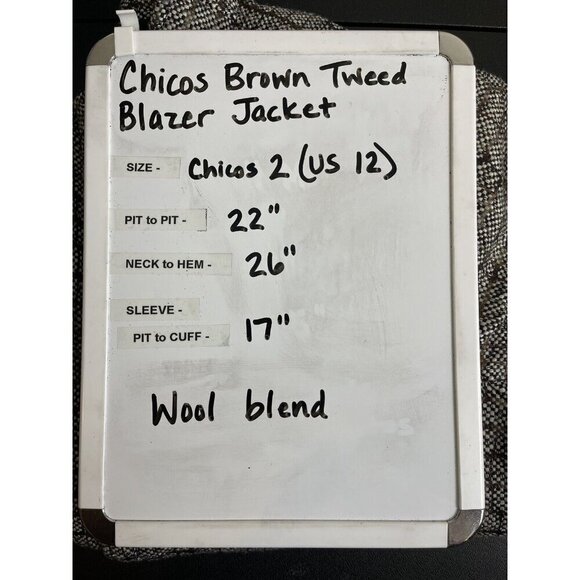 Chicos Brown Tweed
Blazer Jacket
SIZE - Chicos 2 (US 12)
PIT to PIT - 22"
NECK to HEM - 26"
SLEEVE -
PIT to CUFF - 17"
Wool blend